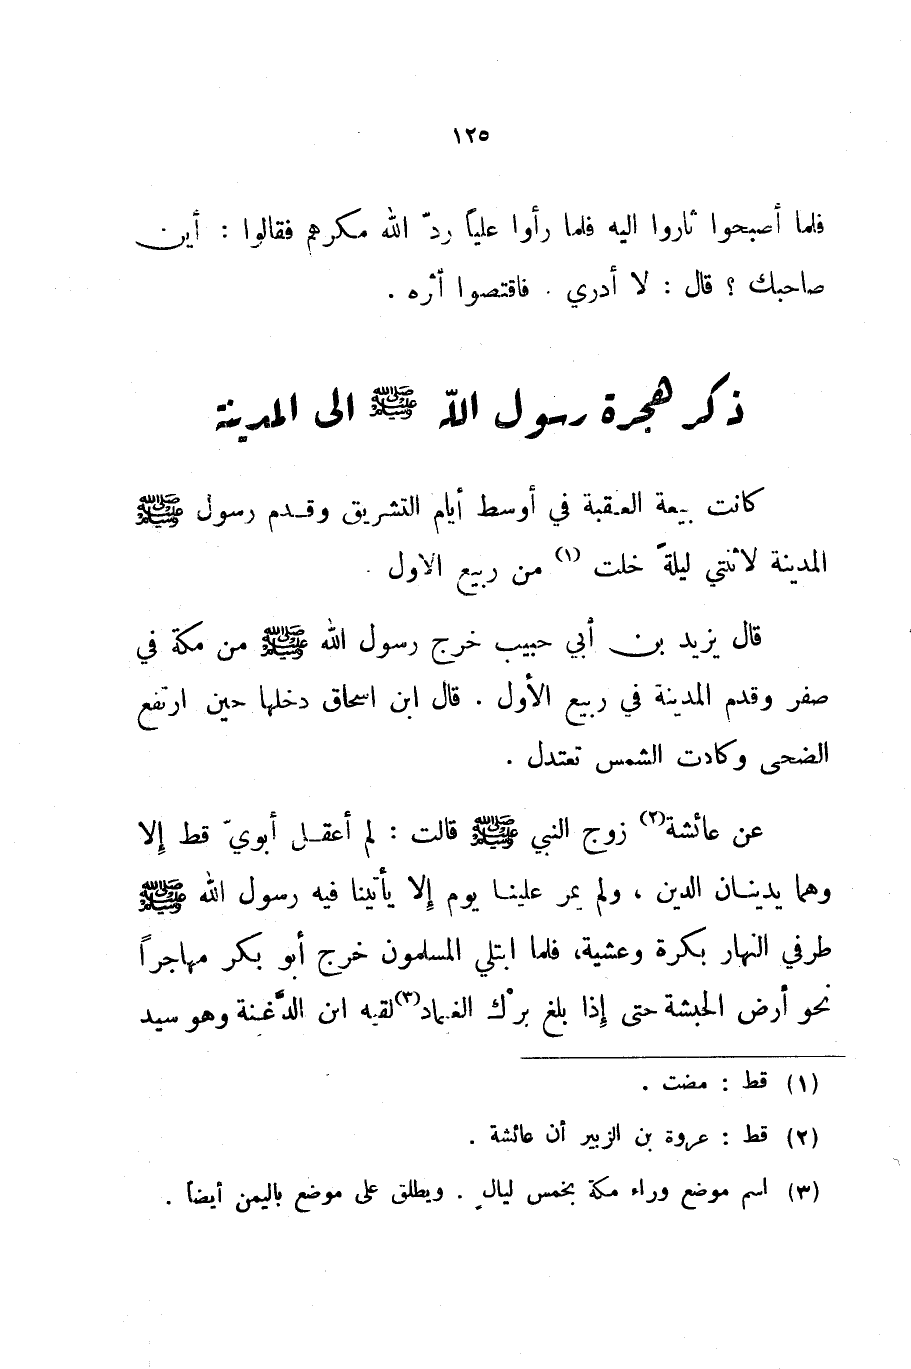 ١٢٥
فلما أصبحوا ثاروا اليه فلما رأوا علياً ردّ الله مكرهم فقالوا : أين
صاحبك ؟ قال : لا أدري . فاقتصوا أثره .
ذكر هجرة رسول الله ﷺ الى المدينة
كانت بيعة العقبة في أوسط أيام التشريق وقدم رسول ﷺ
المدينة لاثنتي ليلةً خلت (١) من ربيع الاول .
قال يزيد بن أبي حبيب خرج رسول الله ﷺ من مكة في
صفر وقدم المدينة في ربيع الأول . قال ابن اسحاق دخلها حين ارتفع
الضحى وكادت الشمس تعتدل .
عن عائشة(٢) زوج النبي ﷺ قالت : لم أعقل أبويّ قط إلا
وهما يدينان الدين ، ولم يمر علينا يوم إلا يأتينا فيه رسول الله ﷺ
طرفي النهار بكرة وعشية، فلما ابتلي المسلمون خرج أبو بكر مهاجراً
نحو أرض الحبشة حتى إذا بلغ برْك الغماد(٣) لقيه ابن الدَّغنة وهو سيد
(١) قط : مضت .
(٢) قط : عروة بن الزبير أن عائشة .
(٣) اسم موضع وراء مكة بخمس ليالٍ . ويطلق على موضع باليمن أيضاً .